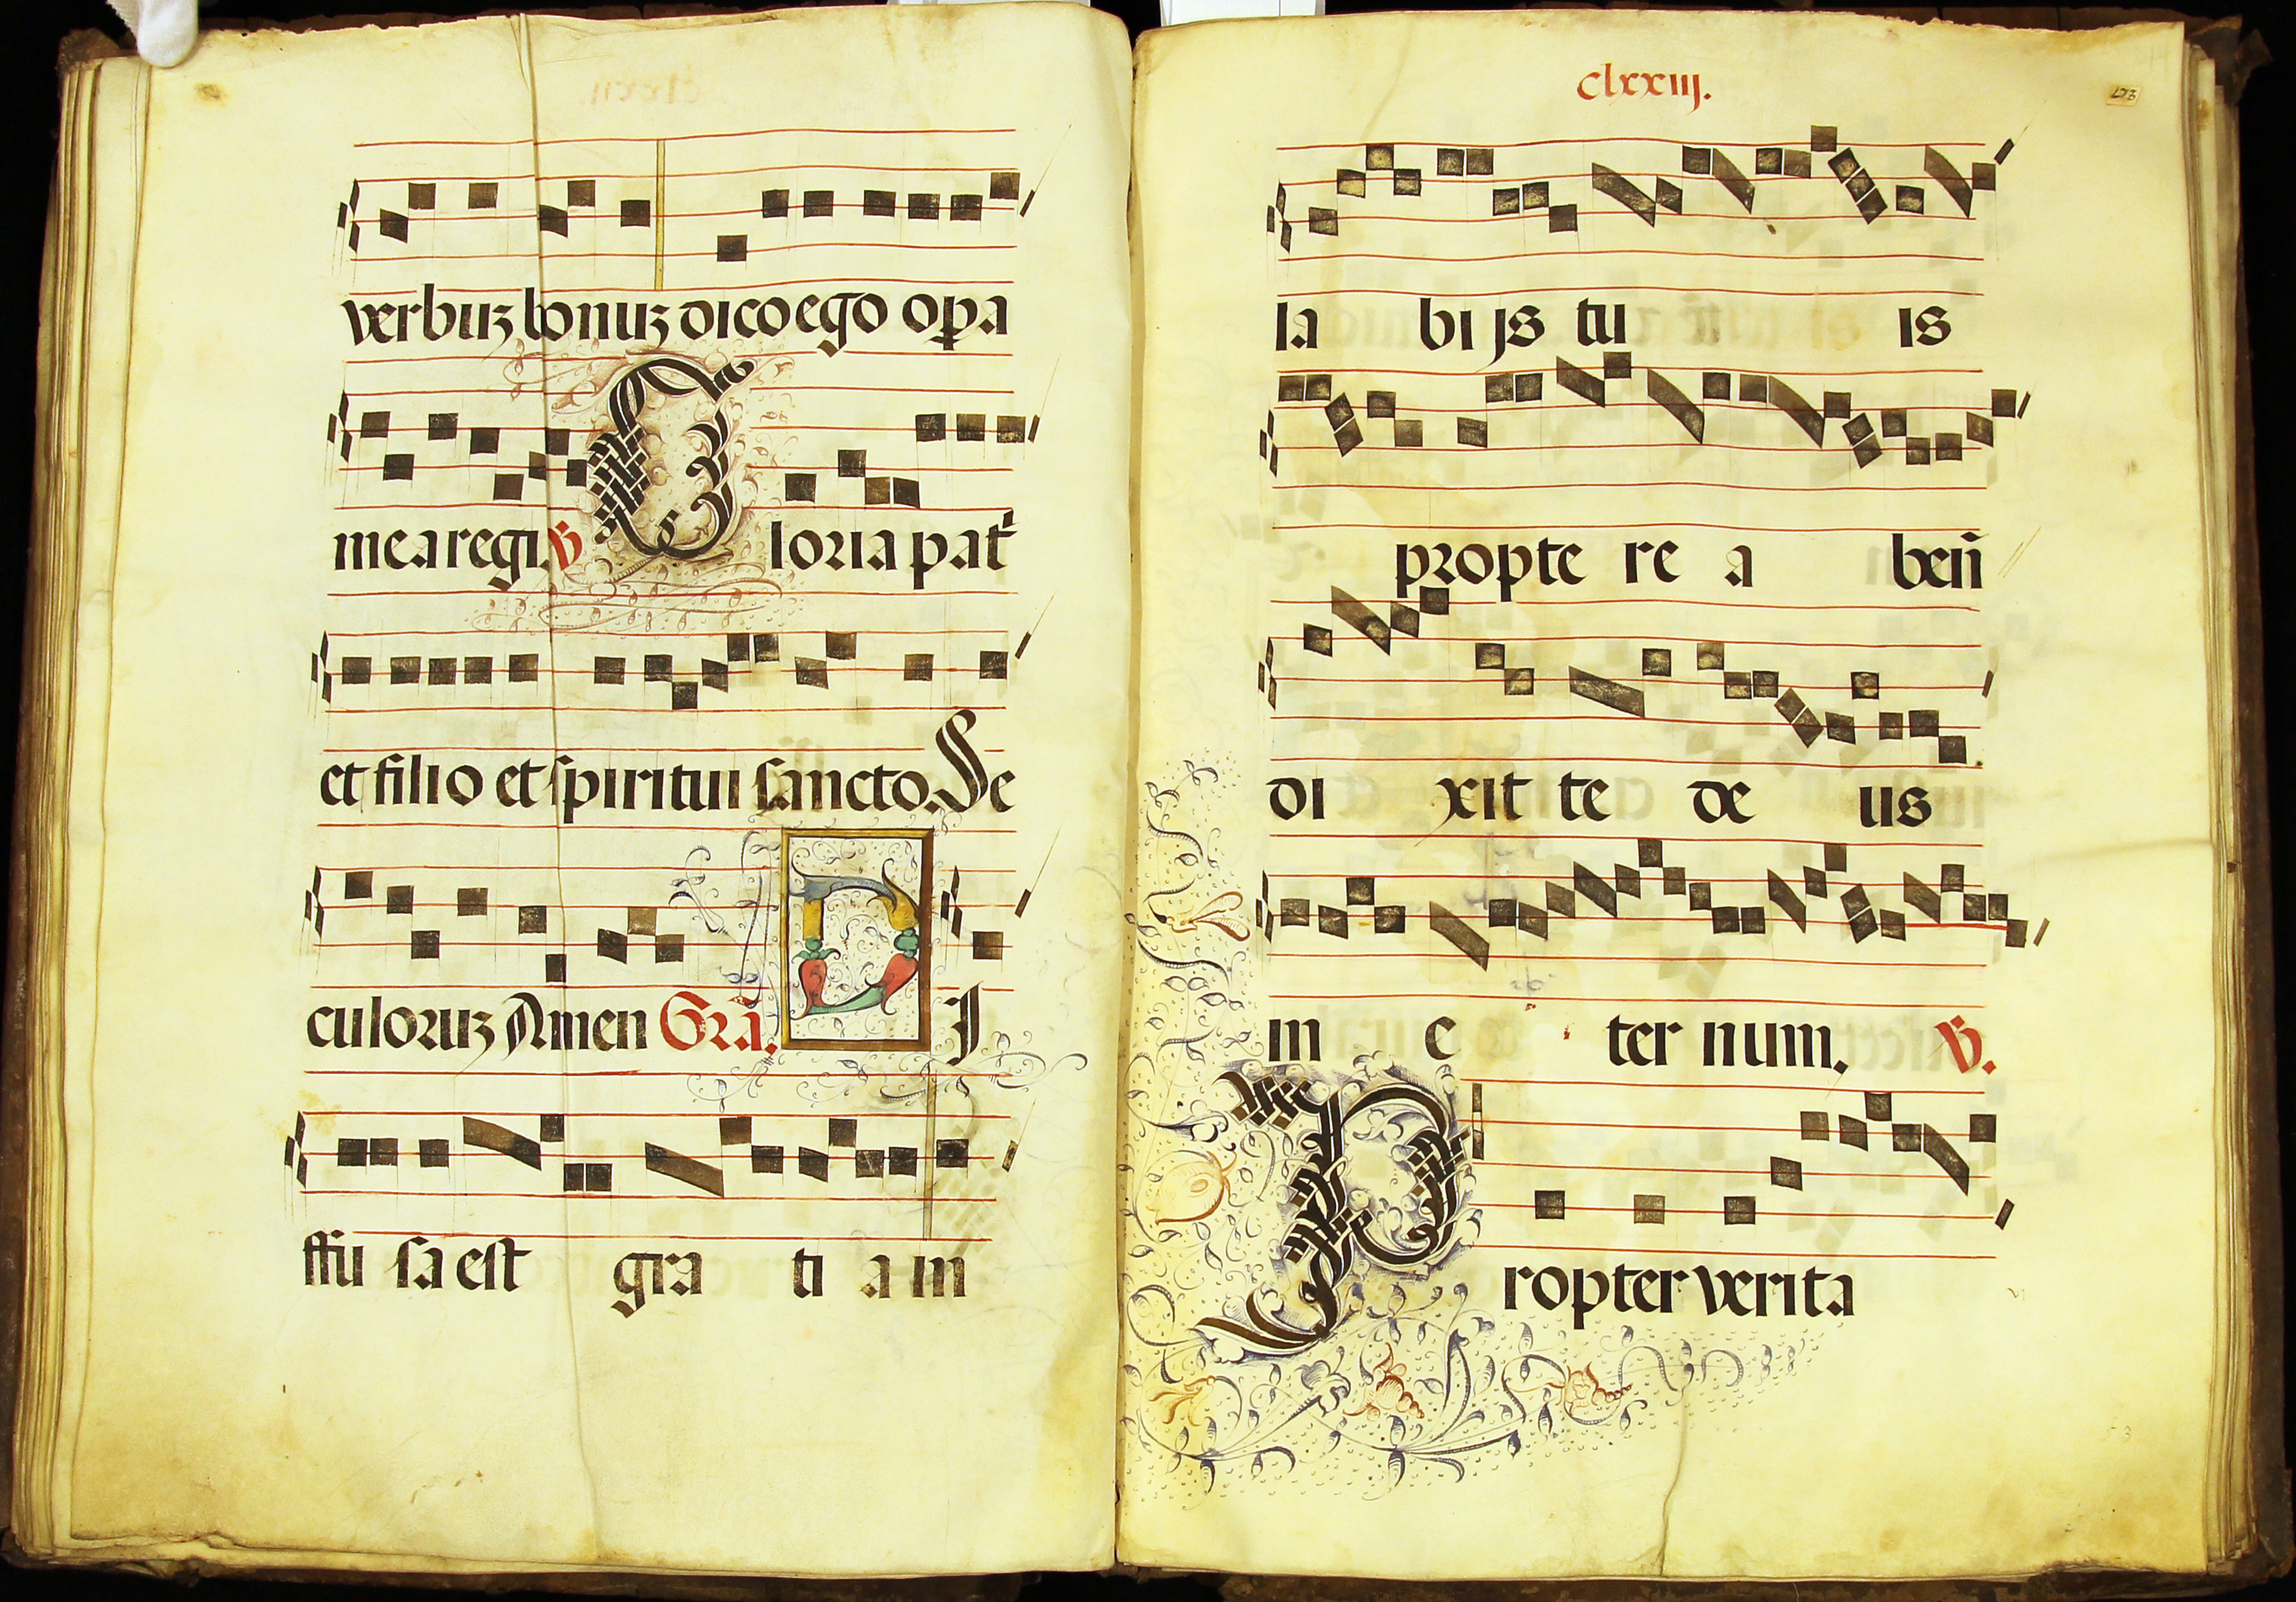 verbuz bonuz dico ego opa
mea regi. V Gloria pat
et filio et spiritui sancto. Se
culoruz Amen Gra. D I
ffu sa est gra ti a in
clxxiij.
173
la bi js tu is
propte re a ben
di xit te de us
in e ter num. V.
Propter verita